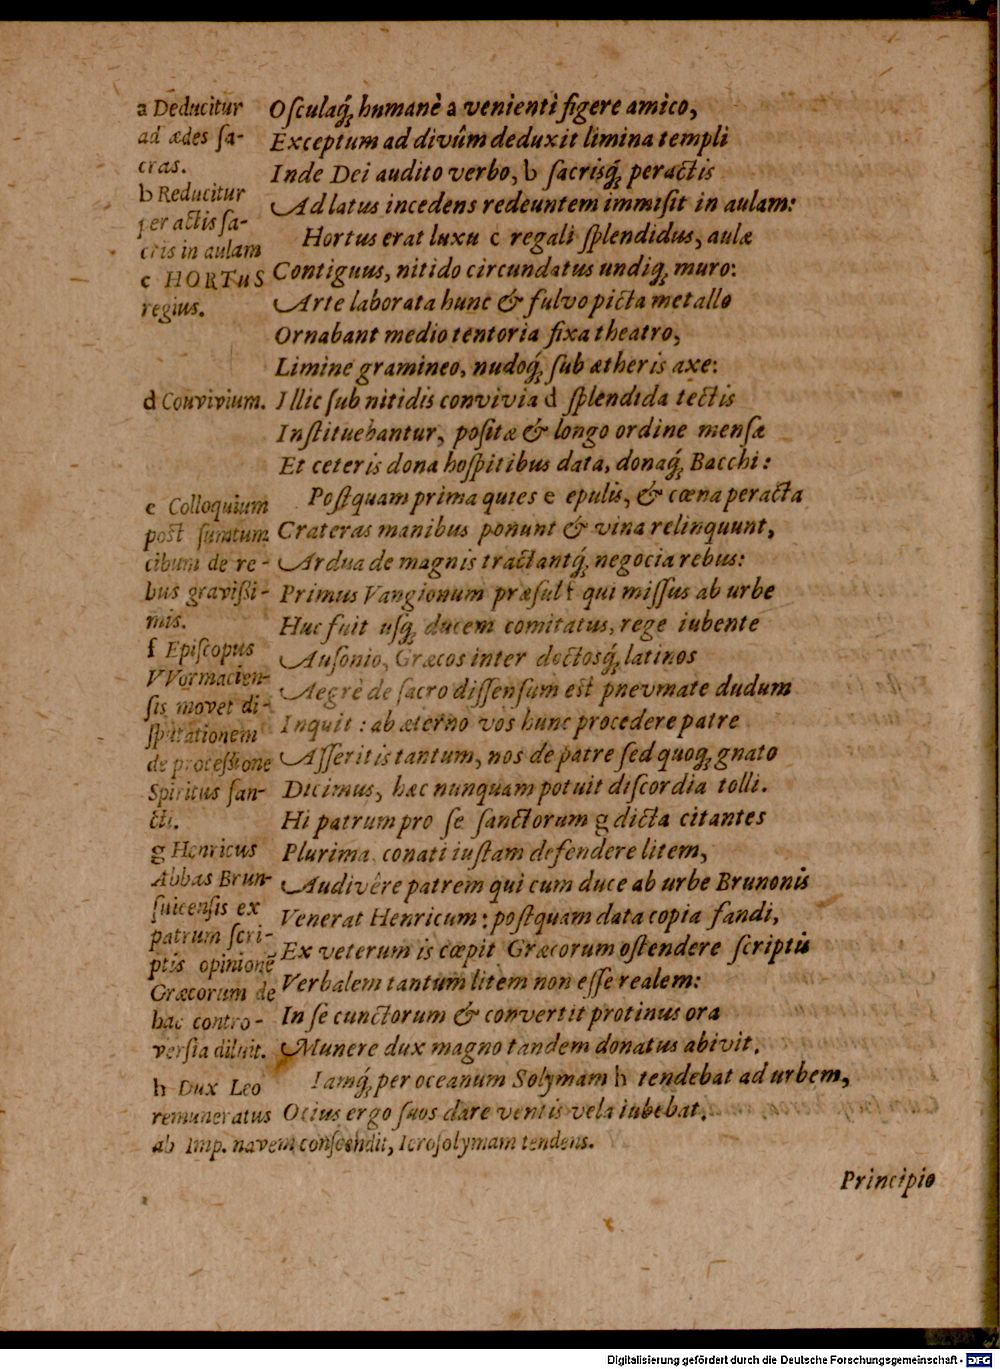 a Deducitur
ad ædes ſa-
cras.
b Reducitur
peractis ſa-
cris in aulam
c HORTuS
regius.
d Convivium.
e Colloquium
poſt ſumtum
cibum de re-
bus gravißi-
mis.
f Epiſcopus
VVormacien-
ſis movet di-
ſputationem
de proceßione
Spiritus ſan-
cti.
g Henricus
Abbas Brun-
ſuicenſis ex
patrum ſcri-
ptis opinionẽ
Græcorum de
hac contro-
verſia diluit.
h Dux Leo
remuneratus
ab Imp. navem conſcendit, Ieroſolymam tendens.
Oſculaq́; humanè a venienti figere amico,
Exceptum ad divûm deduxit limina templi
Inde Dei audito verbo, b ſacrisq́; peractis
Ad latus incedens redeuntem immiſit in aulam:
Hortus erat luxu c regali ſplendidus, aulæ
Contiguus, nitido circundatus undiq; muro:
Arte laborata hunc & fulvo picta metallo
Ornabant medio tentoria fixa theatro,
Limine gramineo, nudoq́; ſub ætheris axe:
Illic ſub nitidis convivia d ſplendida tectis
Inſtituebantur, poſitæ & longo ordine menſæ
Et ceteris dona hoſpitibus data, donaq́; Bacchi:
Poſtquam prima quies e epulis, & cœna peracta
Crateras manibus ponunt & vina relinquunt,
Ardua de magnis tractantq́; negocia rebus:
Primus Vangionum præſul f qui miſſus ab urbe
Huc fuit uſq; ducem comitatus, rege iubente
Auſonio, Græcos inter doctosq́; latinos
Aegrè de ſacro diſſenſum est pnevmate dudum
Inquit : ab æterno vos hunc procedere patre
Aſſeritis tantum, nos de patre ſed quoq; gnato
Dicimus, hæc nunquam potuit diſcordia tolli.
Hi patrum pro ſe ſanctorum g dicta citantes
Plurima conati iuſtam defendere litem,
Audivêre patrem qui cum duce ab urbe Brunonis
Venerat Henricum: poſtquam data copia fandi,
Ex veterum is cœpit Græcorum oſtendere ſcriptis
Verbalem tantum litem non eſſe realem:
In ſe cunctorum & convertit protinus ora
Munere dux magno tandem donatus abivit.
Iamq́; per oceanum Solymam h tendebat ad urbem,
Ocius ergo ſuos dare ventis vela iubebat,
Principio
Digitalisierung gefördert durch die Deutsche Forschungsgemeinschaft - DFG